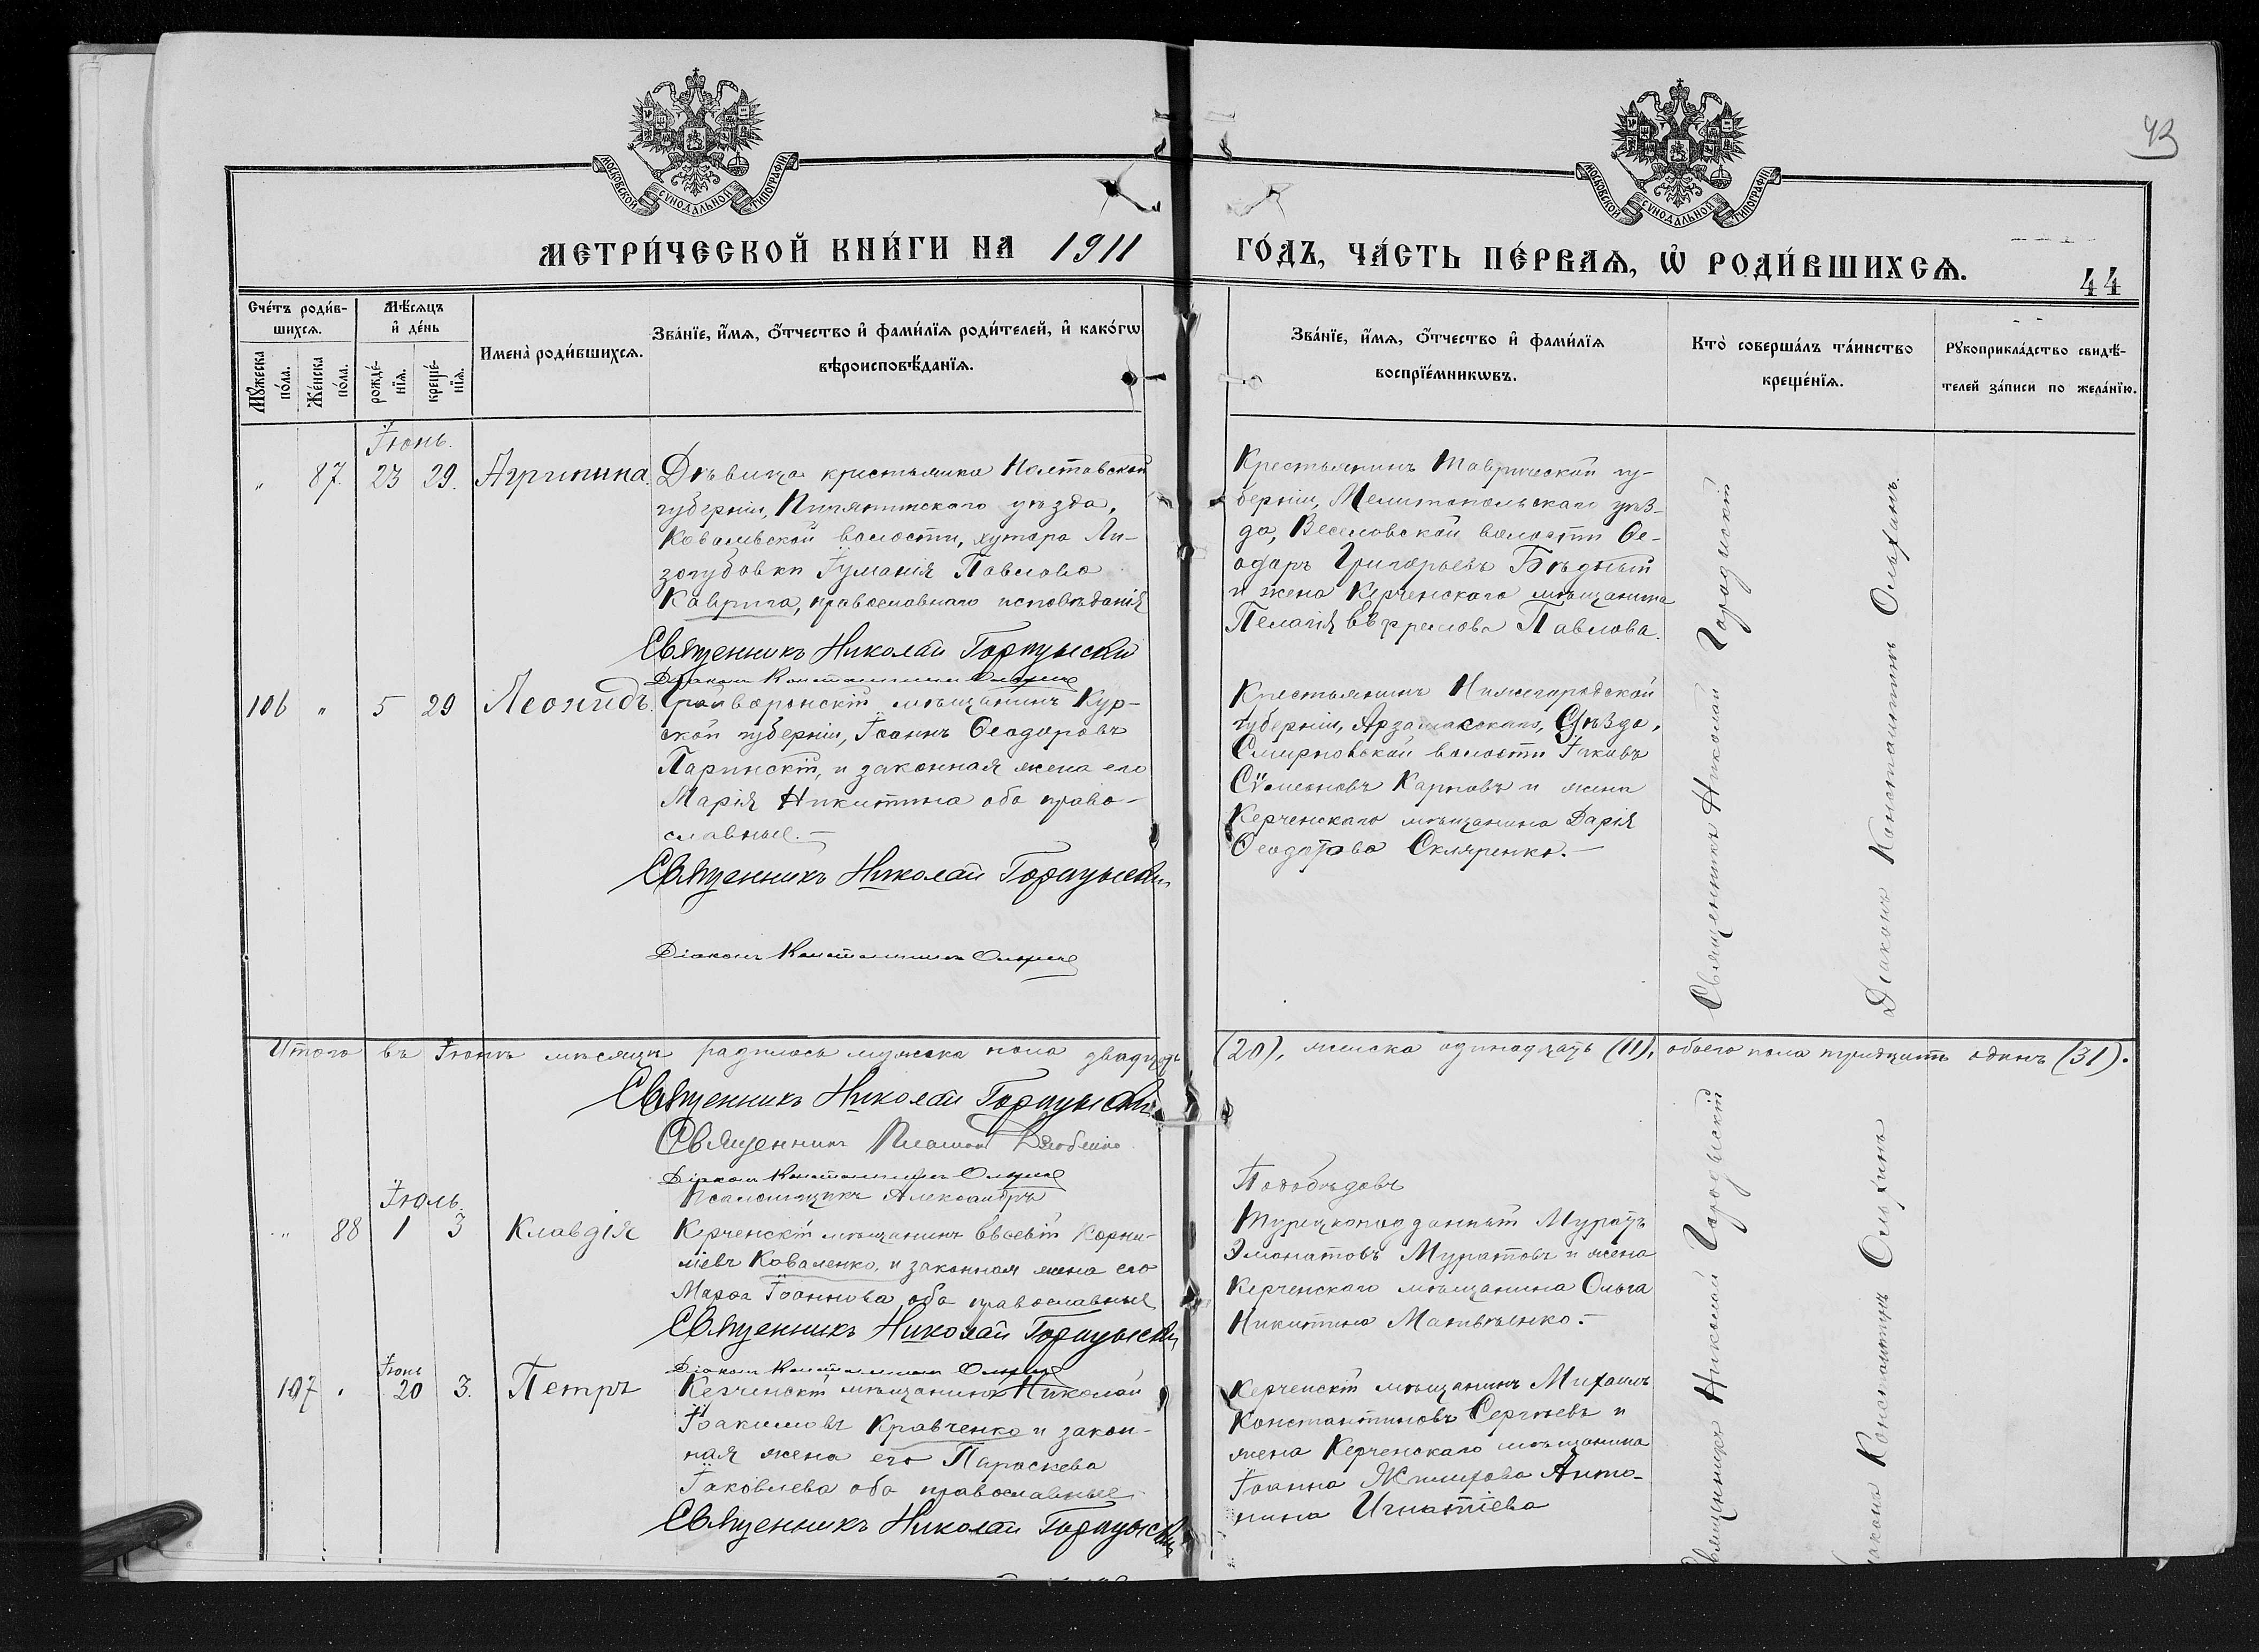 МОСКОВСКОЙ СѴНОДАЛЬНОЙ ТИПОГРАФІИ
МОСКОВСКОЙ СѴНОДАЛЬНОЙ ТИПОГРАФІИ
43
МЕТРИ́ЧЕСКОЙ КНИ́ГИ НА 1911 ГО́ДЪ, ЧА́СТЬ ПЕ́РВАѦ, Ѡ РОДИ́ВШИХСѦ.
44
Сче́тъ роди́в-
шихсѧ.
Мꙋ́жеска по́ла.
Же́нска по́ла.
Мѣ́сѧцъ
и҆ де́нь
рожде́-
нїѧ.
креще́-
нїѧ.
И҆мена̀ роди́вшихсѧ.
Зва́нїе, и҆́мѧ, ѻ҆́тчество и҆ фами́лїѧ роди́телей, и҆ како́гѡ
вѣроисповѣ́данїѧ.
Зва́нїе, и҆́мѧ, ѻ҆́тчество и҆ фами́лїѧ
воспрїе́мникѡвъ.
Кто̀ соверша́лъ та́инство
креще́нїѧ.
Рꙋкоприкла́дство свидѣ́-
телей за́писи по жела́нїю.
Іюнь.
" 87. 23 29. Агрипина.
Дѣвица крестьянка Полтавской
губерніи, Пирятинскаго уѣзда,
Ковалевской волости, хутора Ли-
зогубовки Іуліанія Павлова
Каврига, православнаго исповѣданія
Священникъ Николай Городыскій
Діаконъ Константинъ Ольхинъ
Крестьянинъ Таврической гу-
берніи, Мелитопольскаго уѣз-
да, Веселовской волости Ѳе-
одоръ Григорьевъ Бѣдный
и жена Керченскаго мѣщанина
Пелагія Евфремова Павлова.
106 " 5 29 Леонидъ.
Грайворонскій мѣщанинъ Кур-
ской губерніи, Іоаннъ Ѳеодоровъ
Паринскій, и законная жена его
Марія Никитина оба право-
славные.-
Священникъ Николай Городыскій
Діаконъ Константинъ Ольхинъ
Крестьянинъ Нижегородской
губерніи, Арзамасскаго, Уѣзда,
Смирновской волости Іаковъ
Сѵмеоновъ Карповъ и жена
Керченскаго мѣщанина Дарія
Ѳеодотова Скляренко.-
Священникъ Николай Городыскій
Діаконъ Константинъ Ольхинъ.
Итого въ Іюнѣ мѣсяцѣ родилось мужска пола двадцать (20), женска одинадцать (11), обоего пола тридцать одинъ (31).
Священникъ Николай Городыскій
Священникъ
Діаконъ Константинъ Ольхинъ
Псаломщикъ Александръ Побѣдовъ
Іюль.
" 88 1 3 Клавдія
Керченскій мѣщанинъ Евсевій Корни-
ліевъ Коваленко, и законная жена его
Марѳа Іоаннова оба православные
Священникъ Николай Городыскій
Діаконъ Константинъ Ольхинъ
Турецкоподданный Муратъ
Эмонатовъ Муратовъ и жена
Керченскаго мѣщанина Ольга
Никитина Матвѣенко.-
Іюнь
107 " 20 3. Петръ
Керченскій мѣщанинъ Николай
Іоакимовъ Кравченко и закон-
ная жена его Параскева
Іаковлева оба православные
Священникъ Николай Городыскій
Керченскій мѣщанинъ Михаилъ
Константиновъ Сергѣевъ и
жена Керченскаго мѣщанина
Іоанна Анто-
нина Игнатіева
Священникъ Николай Городыскій
Діаконъ Константинъ Ольхинъ